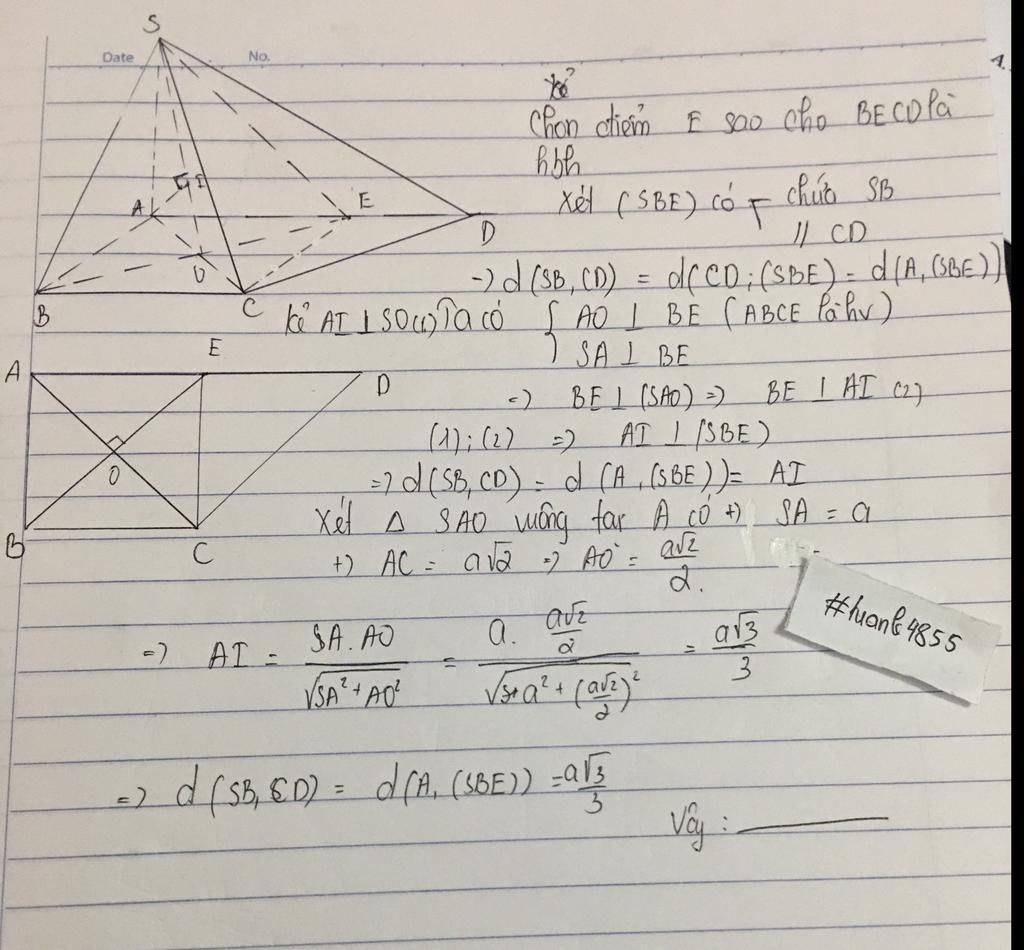 S
Date No.
kẻ
Chọn điểm E sao cho BECD là
hbh
Xét (SBE) có chứa SB
// CD
A I E D
O
B C
-> d(SB,CD) = d(CD;(SBE) = d(A,(SBE))
kẻ AI ⊥ SO(1) Ta có { AO ⊥ BE (ABCE là hv)
SA ⊥ BE
A E D
=> BE ⊥ (SAO) => BE ⊥ AI (2)
(1);(2) => AI ⊥ (SBE)
O
=> d(SB,CD) = d(A,(SBE)) = AI
B C
Xét Δ SAO vuông tại A có +) SA = a
+) AC = a√2 => AO = a√2/2.
#tuanls4855
=> AI = SA.AO/√SA²+AO² = a.a√2/2/√a²+(a√2/2)² = a√3/3
=> d(SB,CD) = d(A,(SBE)) = a√3/3
Vậy :